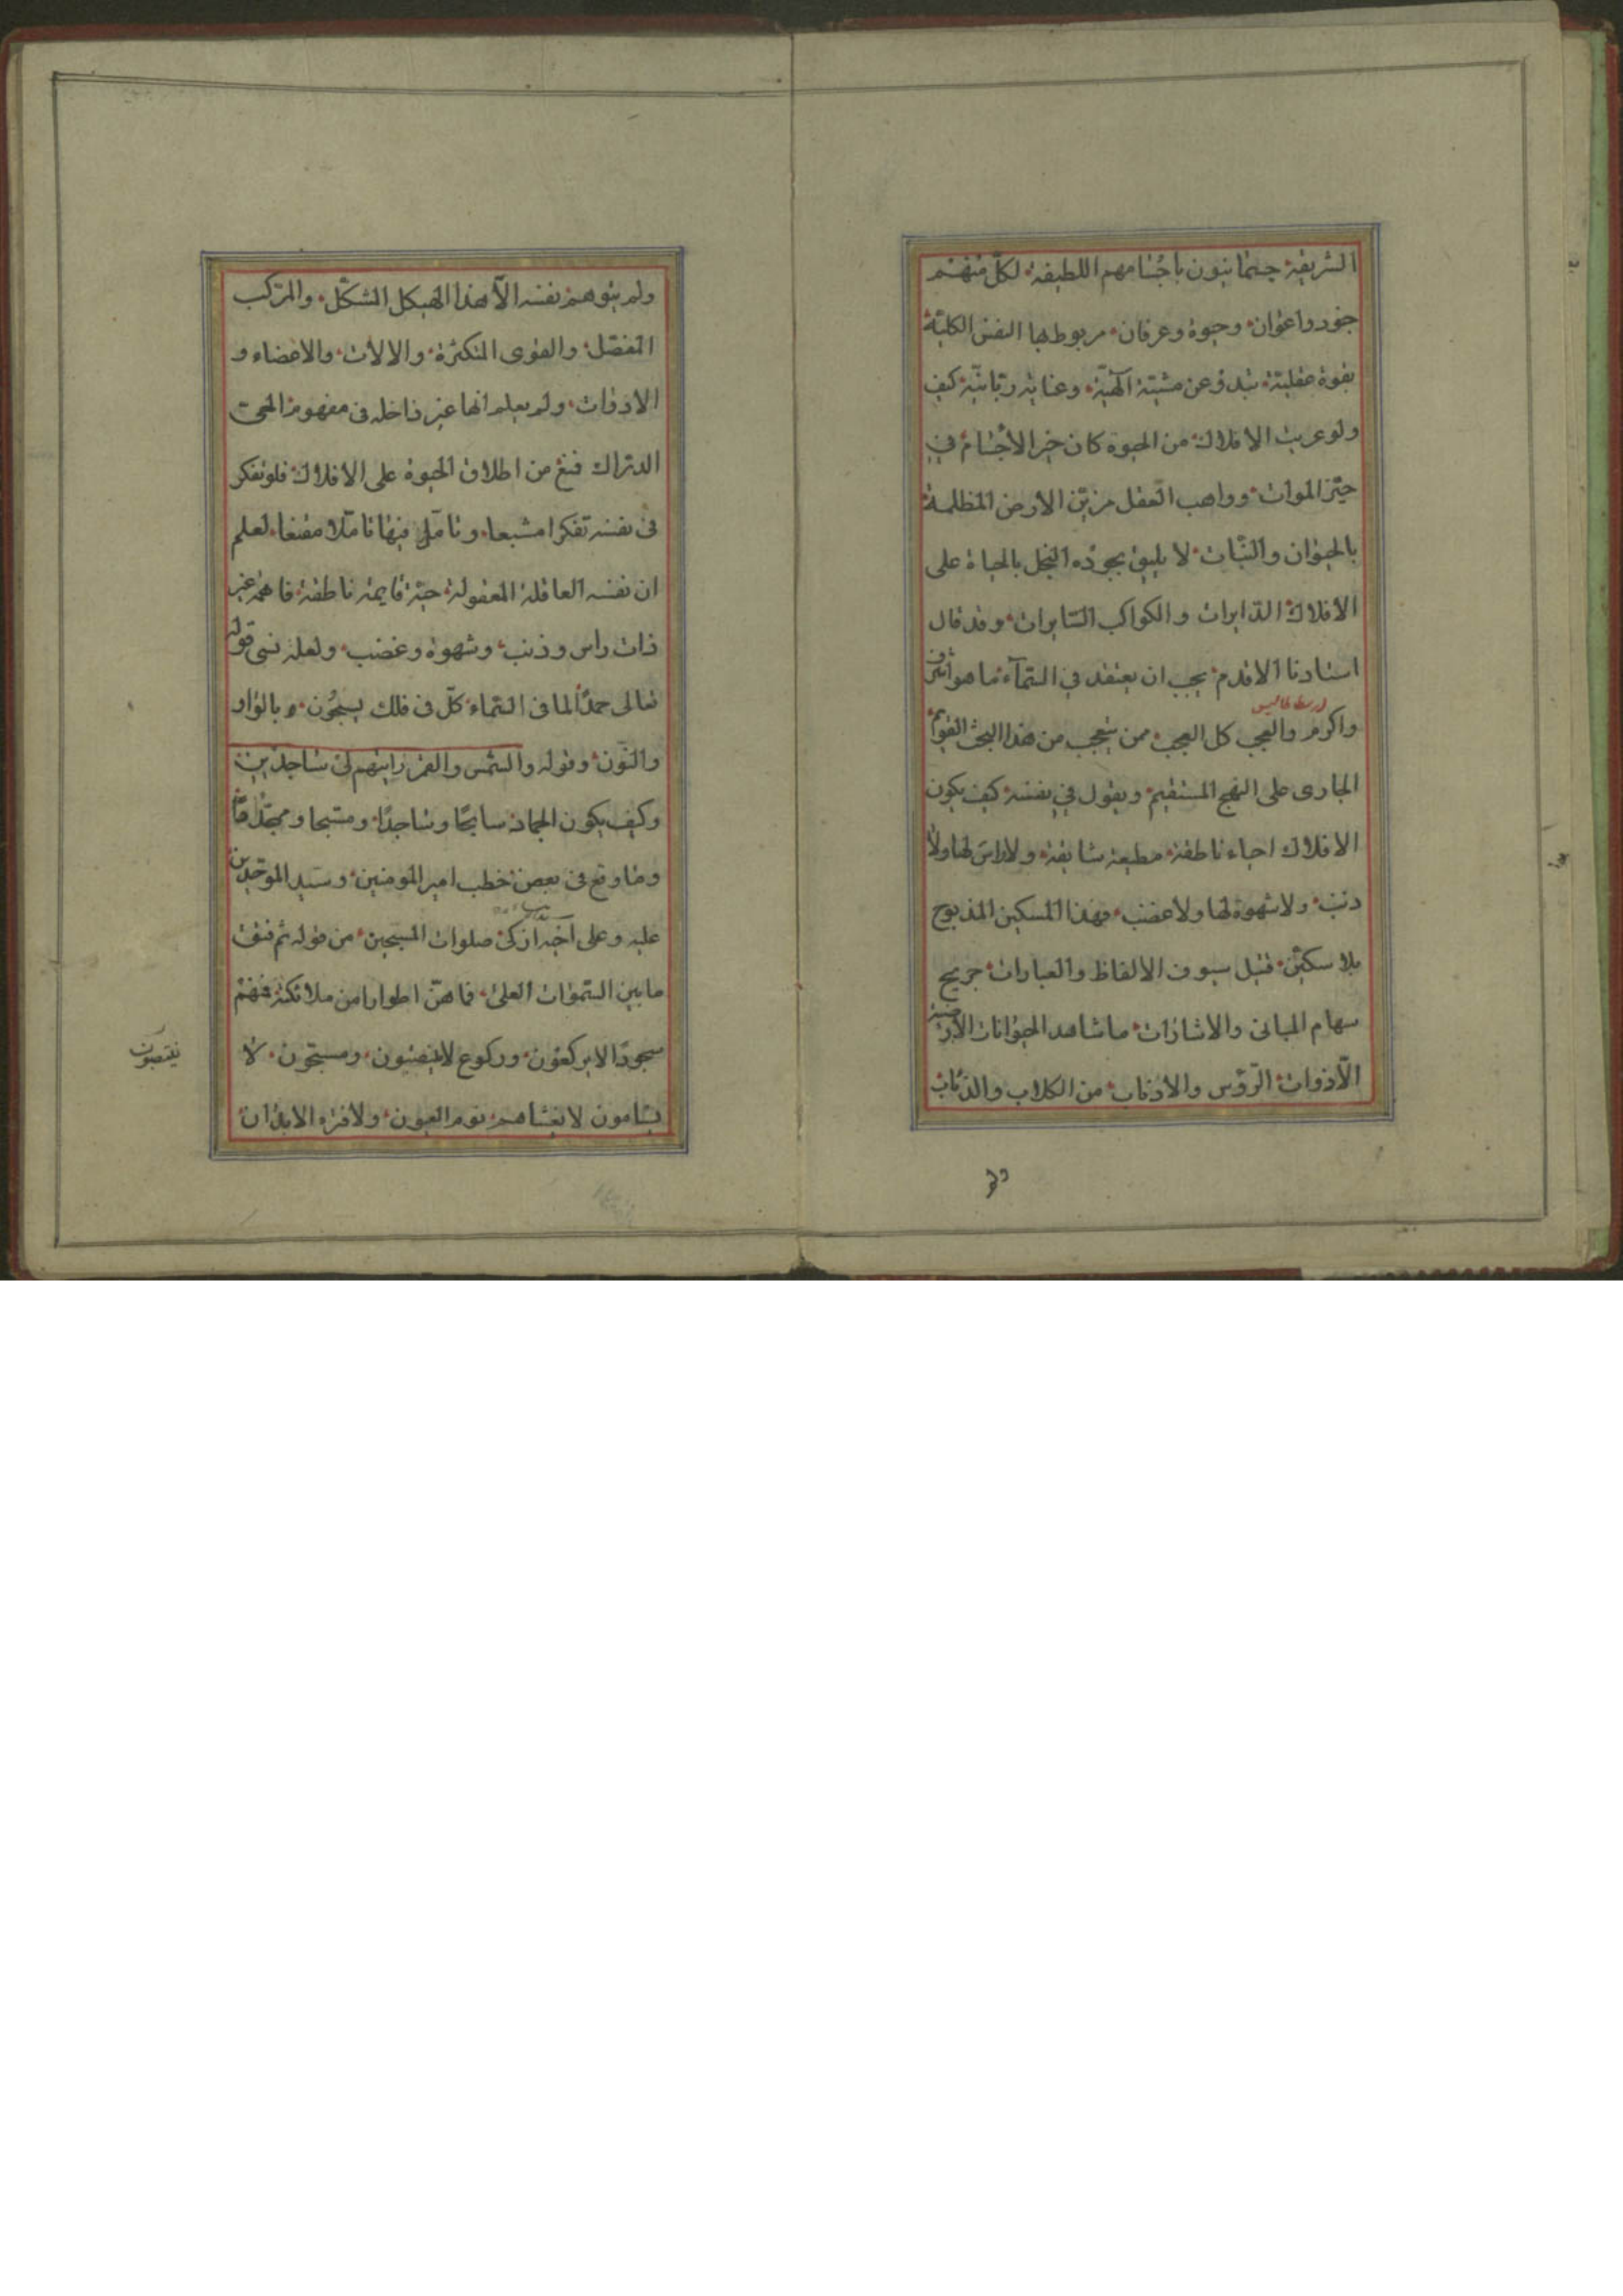 الشريفة جسمانيون باجسامهم اللطيفة لكلّ منهم
جنود واعوان وحيوة وعرفان مربوط بها النفس الكلية
بقوة عقلية تبدو عن مشيّة آلهيّة وعناية ربّانيّة كيف
ولو عريت الافلاك من الحيوة كان خير الاجسام في
حيّز الموات وواهب العقل مزيّن الارض المظلمة
بالحيوان والنّبات لا يليق بجوده البخل بالحياة على
الافلاك الدّايرات والكواكب السّايرات وقد قال
استادنا الاقدم يجب ان يعتقد في السّمآء ما هو اشرف
ارسطاطاليس
واكرم والعجب كل العجب ممن يتعجب من هذا البحث القويم
الجارى على النهج المستقيم ويقول في نفسه كيف يكون
الافلاك احياء ناطقة مطيعة شايقة ولا راس لها ولا
ذنب ولا شهوة لها ولا غضب فهذا المسكين المذبوح
بلا سكّين قتيل سيوف الالفاظ والعبارات جريح
سهام المبانى والاشارات ما شاهد الحيوانات الارضية
الّا ذوات الرّؤس والاذناب من الكلاب والذّئاب
ولم
ولم يتوهم نفسه الّا هذا الهيكل المشكّل والمركب
المفصّل والقوى المتكثرة والالات والاعضاء و
الادوات ولم يعلم انها غير داخله فى مفهوم الحى
الدّراك فمنع من اطلاق الحيوة على الافلاك فلو تفكر
فى نفسه تفكرا مشبعا وتامّل فيها تامّلا مقنعا لعلم
ان نفسه العاقلة المعقولة حيّة قايمة ناطقة فاهمة غير
ذات راس وذنب وشهوة وغضب ولعله نسى قوله
تعالى حمدًا لما فى السّماء كلّ فى فلك يسبحُون بالواو
والنّون وقوله والشّمس والقمر رايتهم لى ساجدين
وكيف يكون الجماد سابحًا وساجدًا ومسّبحا ومجّدا
وما وقع فى بعض خطب امير المومنين وسيد الموحّدين
عليه وعلى آخيه ازكى صلوات المسبحين من قوله ثم فتق
ما بين السّموات العلى فملاهنّ اطوارا من ملائكته فمنهم
سجودًا لا يركعون وركوع لا ينصبون ومسبّحون لا
ينتصبون
يسامون لا يغشاهم نوم العيون ولا فترة الابدان